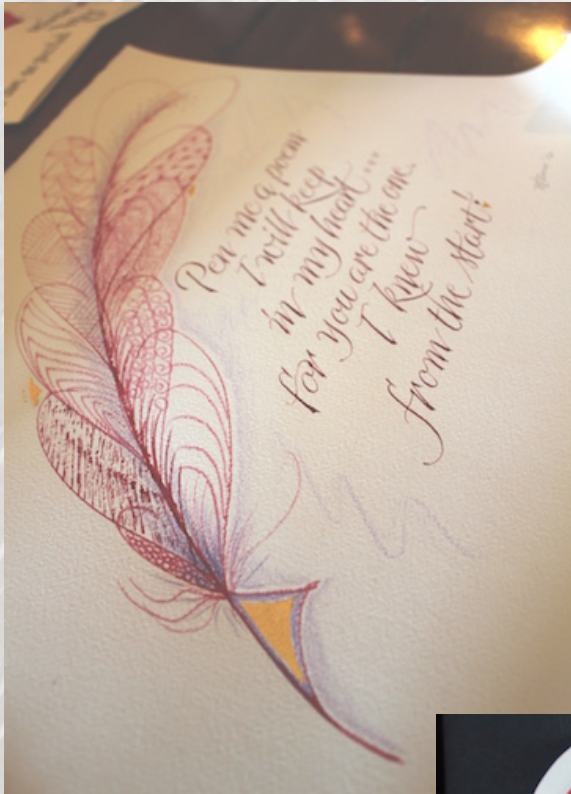 Pen me a poem
I will keep
in my heart...
for you are the one.
I knew
from the start!